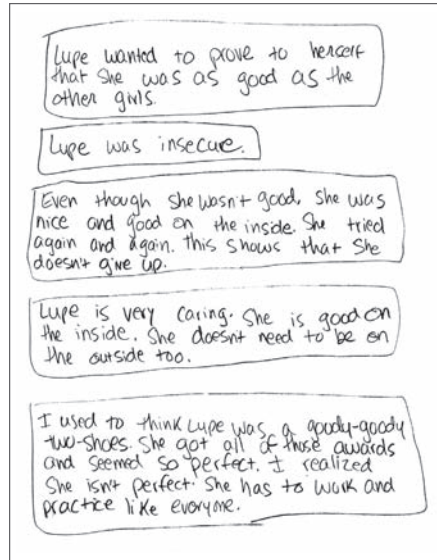 Lupe wanted to prove to herself
that she was as good as the
other girls.
Lupe was insecure.
Even though she wasn't good, she was
nice and good on the inside. She tried
again and again. this shows that she
doesn't give up.
Lupe is very caring. She is good on
the inside. She doesnt need to be on
the outside too.
I used to think Lupe was a goody-goody
two-shoes. She got all of those awards
and seemed so perfect. I realized
She isn't perfect. She has to work and
practice like everyone.